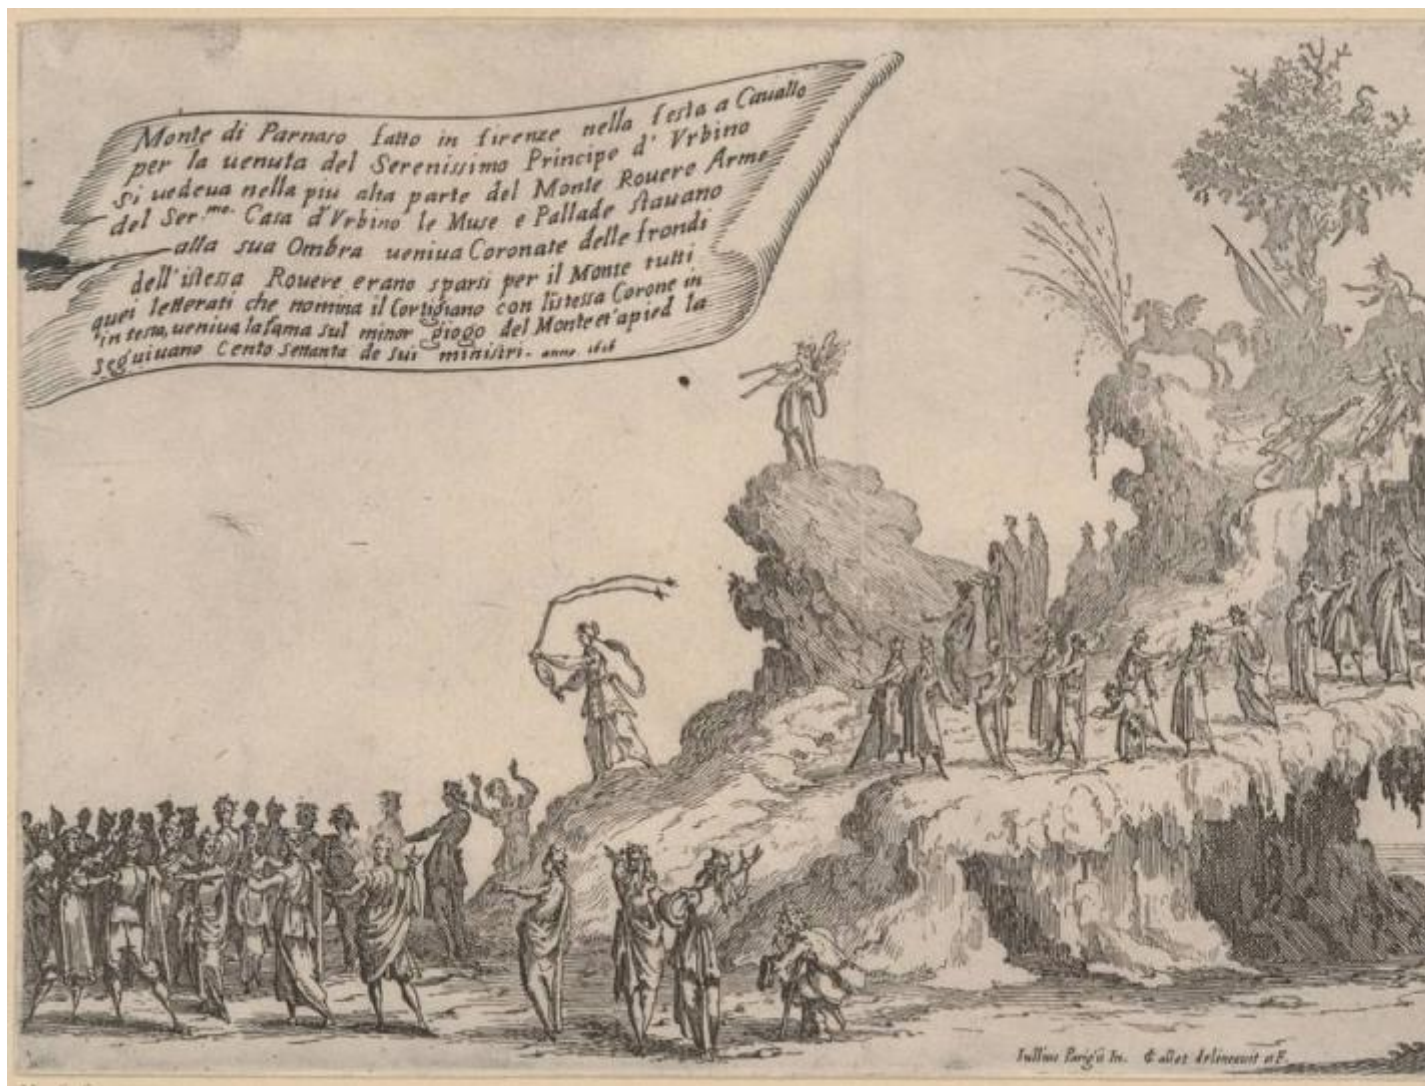 Monte di Parnaso fatto in firenze nella festa a Cauallo
per la uenuta del Serenissimo Principe d' Vrbino
Si uedeua nella piu alta parte del Monte Rouere Arme
del Ser.mo. Casa d'Vrbino le Muse e Pallade stauano
alla sua Ombra ueniua Coronate delle frondi
dell'istessa Rouere erano sparsi per il Monte tutti
quei letterati che nomina il Cortigiano con listessa Corone in
in testa, ueniua la fama sul minor giogo del Monte et apied la
seguiuano Cento settanta de sui ministri. anno. 1616
Iullius Parigii In. Callot delineauit et F.